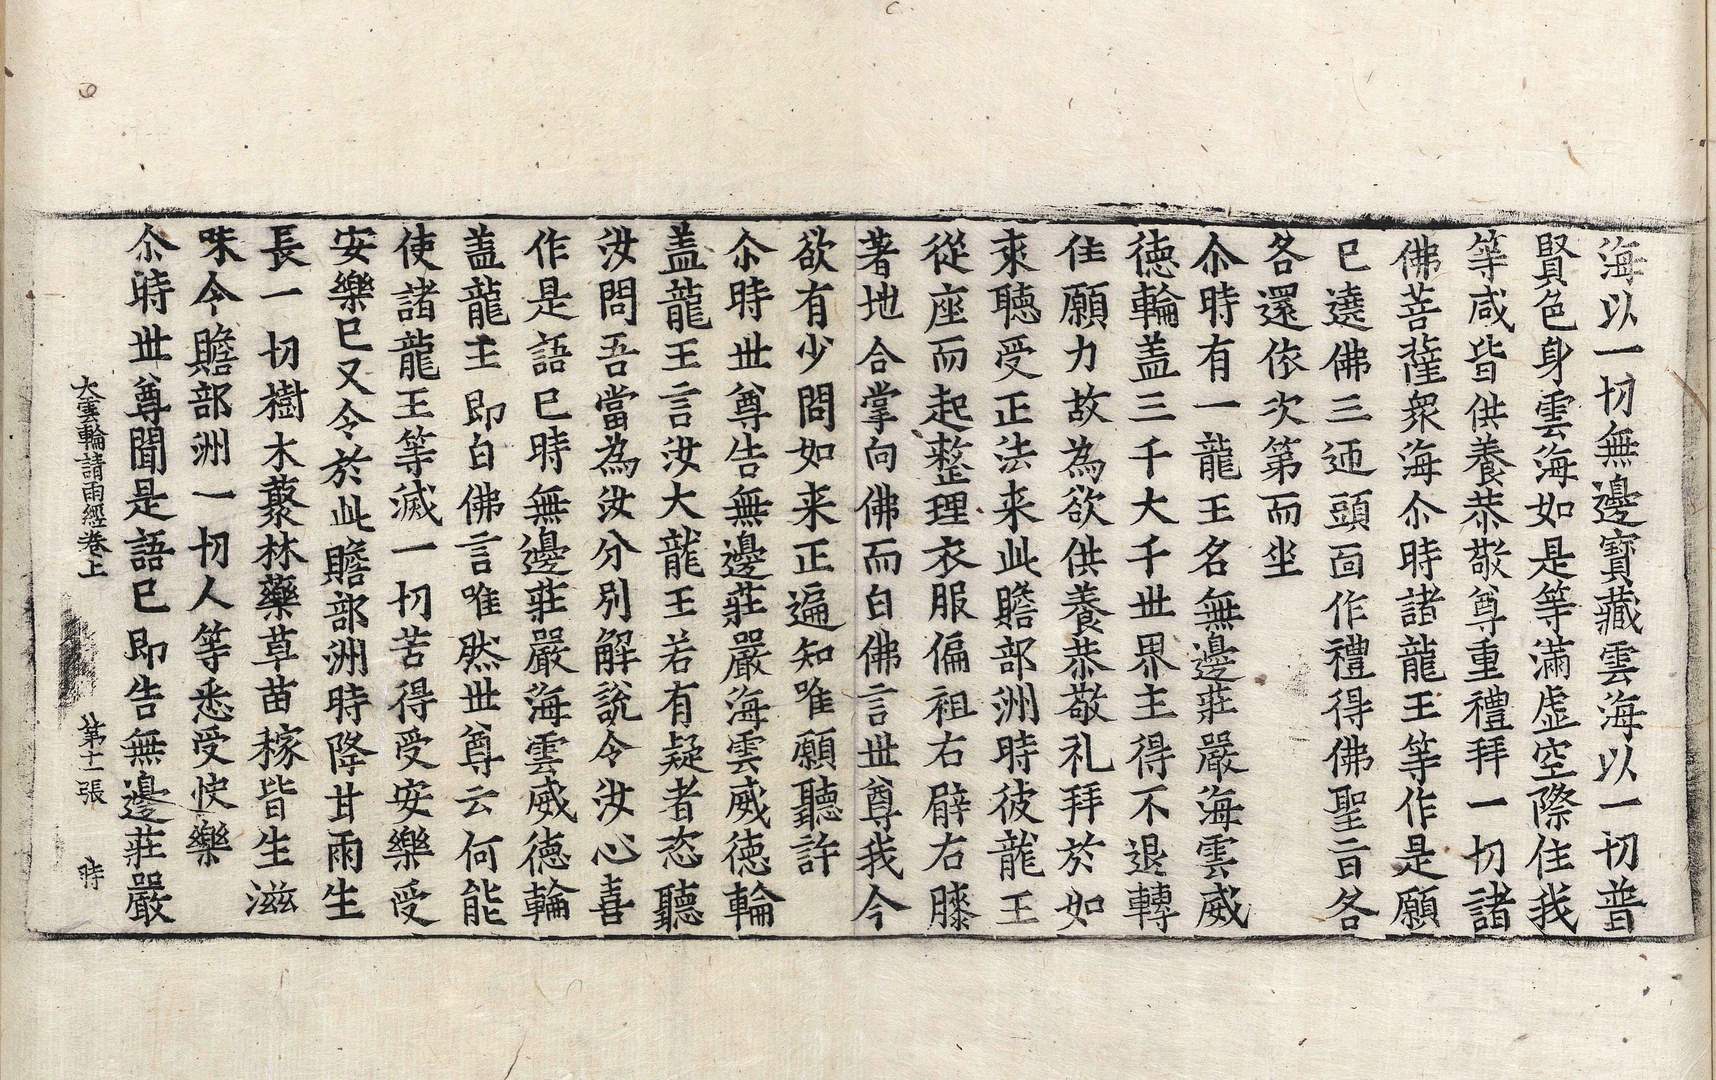 海以一切無邊寶藏雲海以一切普
賢色身雲海如是等滿虛空際住我
等咸皆供養恭敬尊重禮拜一切諸
佛菩薩衆海尒時諸龍王等作是願
已遶佛三迊頭靣作禮得佛聖旨各
各還依次第而坐
尒時有一龍王名無邊莊嚴海雲威
德輪盖三千大千世界主得不退轉
住願力故為欲供養恭敬礼拜於如
來聽受正法来此贍部洲時彼龍王
從座而起整理衣服偏袒右臂右膝
著地合掌向佛而白佛言世尊我今
欲有少問如来正遍知唯願聽許
尒時世尊告無邊莊嚴海雲威德輪
盖龍王言汝大龍王若有疑者恣聽
汝問吾當為汝分別解說令汝心喜
作是語已時無邊莊嚴海雲威德輪
盖龍王即白佛言唯然世尊云何能
使諸龍王等滅一切苦得受安樂受
安樂已又令於此贍部洲時降甘雨生
長一切樹木藂林藥草苗稼皆生滋
味令贍部洲一切人等悉受快樂
尒時世尊聞是語已即告無邊莊嚴
大雲輪請雨經卷上 第十一張 時